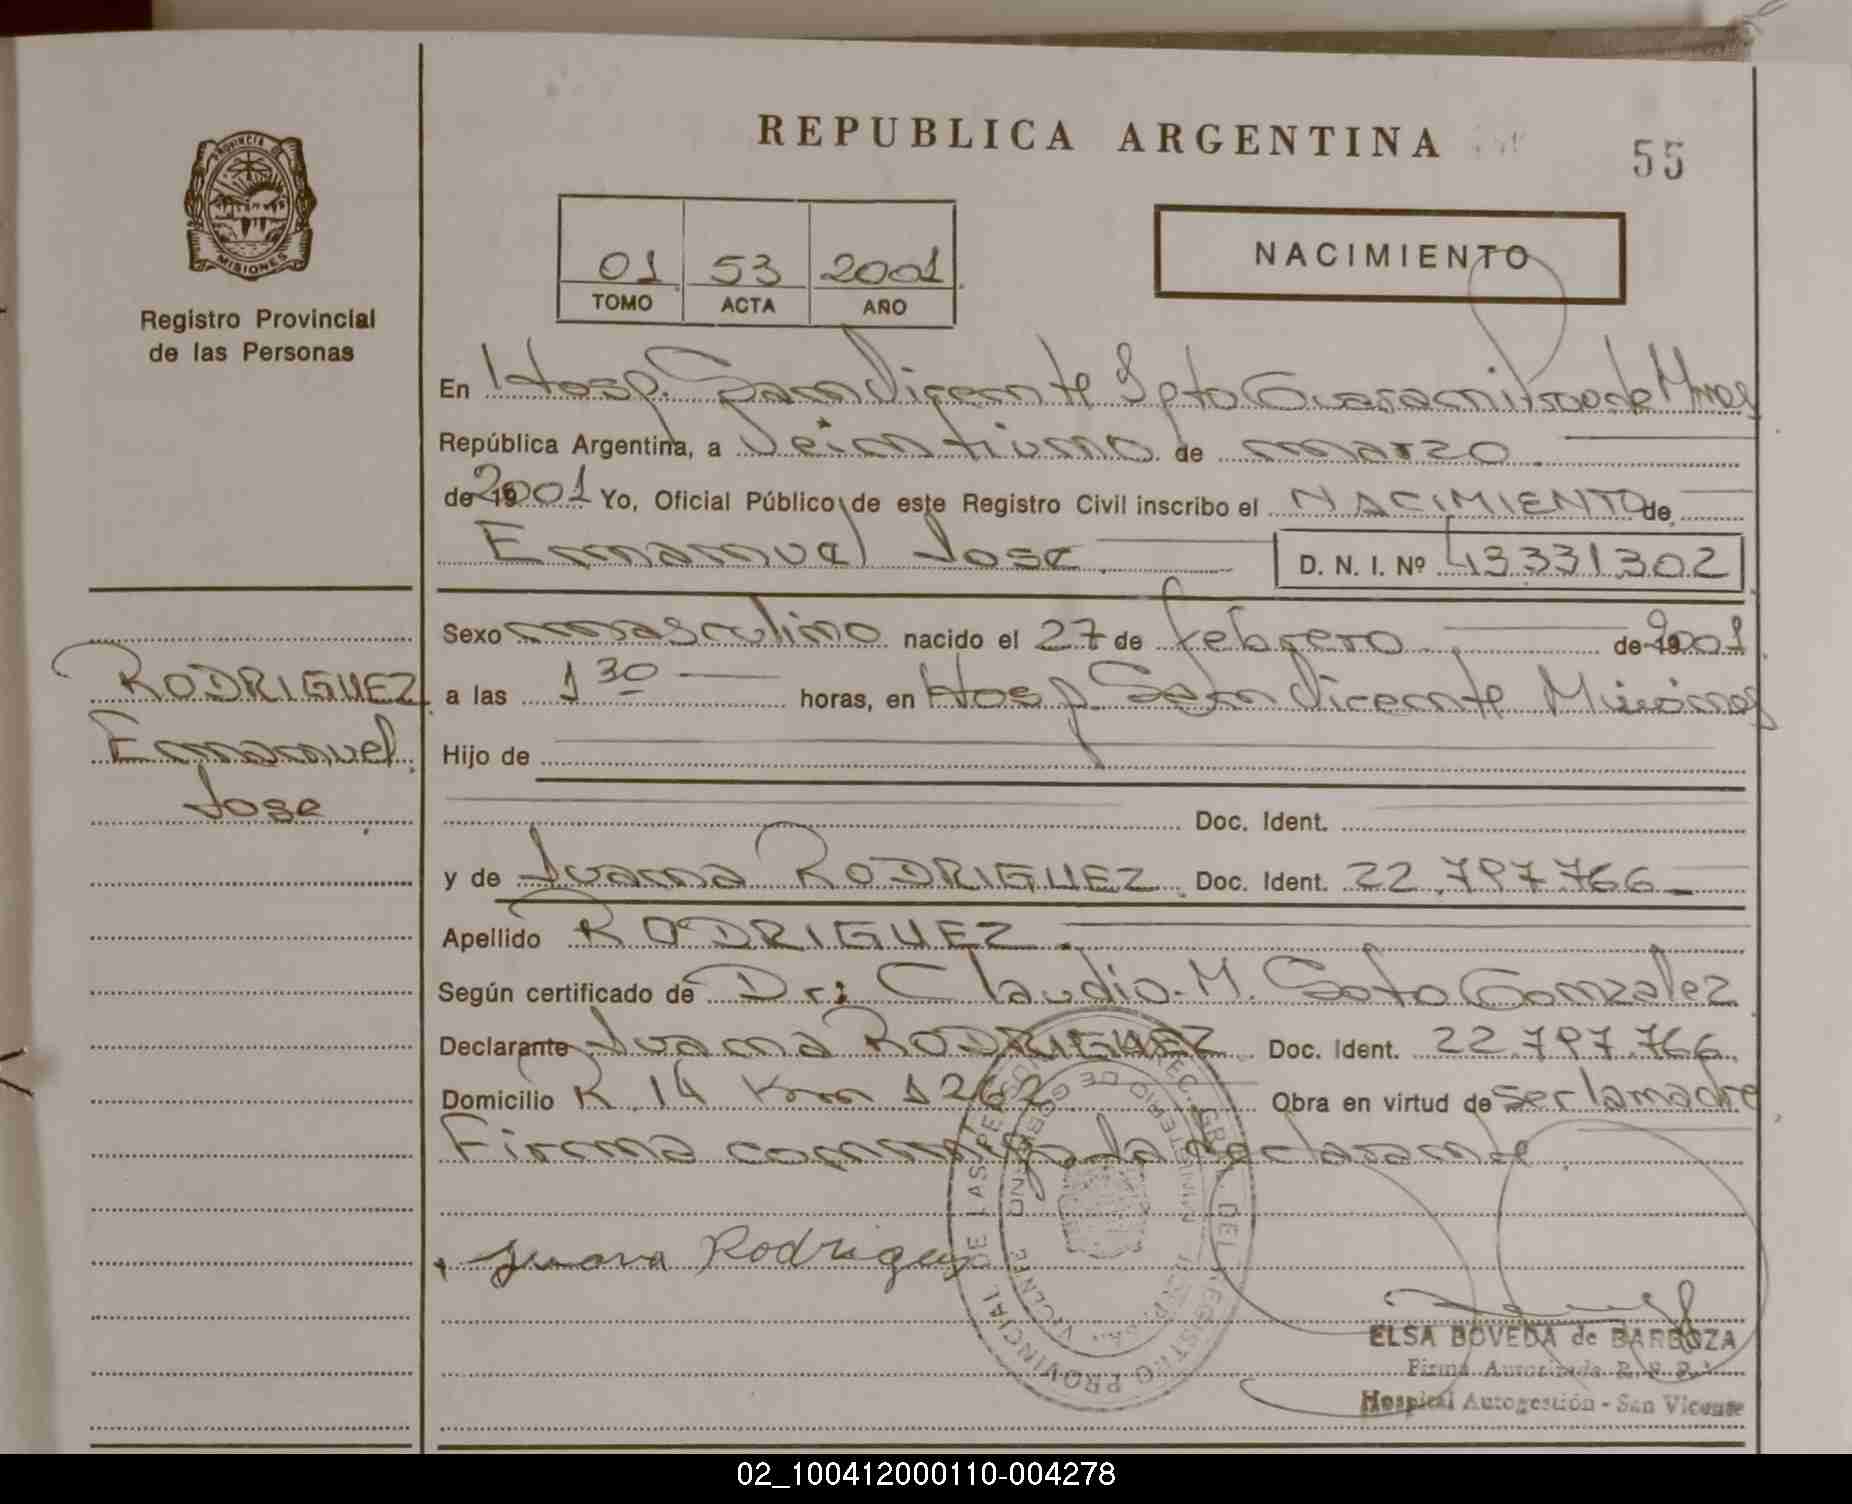 REPUBLICA ARGENTINA
55
PROVINCIA DE
MISIONES
Registro Provincial
de las Personas
01 53 2001
TOMO ACTA AÑO
NACIMIENTO
En Hosp. San Vicente Dpto Guarani Prov de Mnes
República Argentina, a Veintiuno de marzo
de 2001 Yo, Oficial Público de este Registro Civil inscribo el NACIMIENTO de
Emanuel Jose D. N. I. Nº 43331302
Sexo masculino nacido el 27 de febrero de 2001
RODRIGUEZ
Emanuel
Jose
a las 1 30 horas, en Hosp. San Vicente Misiones
Hijo de
Doc. Ident.
y de Juana RODRIGUEZ Doc. Ident. 22.797.766
Apellido RODRIGUEZ
Según certificado de Dr: Claudio M. Soto Gonzalez
Declarante Juana RODRIGUEZ Doc. Ident. 22.797.766
Domicilio R 14 Km 1262 Obra en virtud de ser la madre
Firma conmigo la declarante
Juana Rodriguez
REGISTRO PROVINCIAL DE LAS PERSONAS
MINISTERIO DE GOBIERNO
VICENTE
ELSA BOVEDA de BARBOZA
Firma Autorizada R. P. P.
Hospital Autogestión - San Vicente
02_100412000110-004278